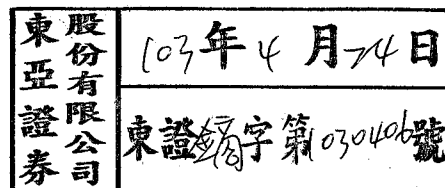 東亞證券
股份有限公司
103年4月24日
東證鏑字第1030406號